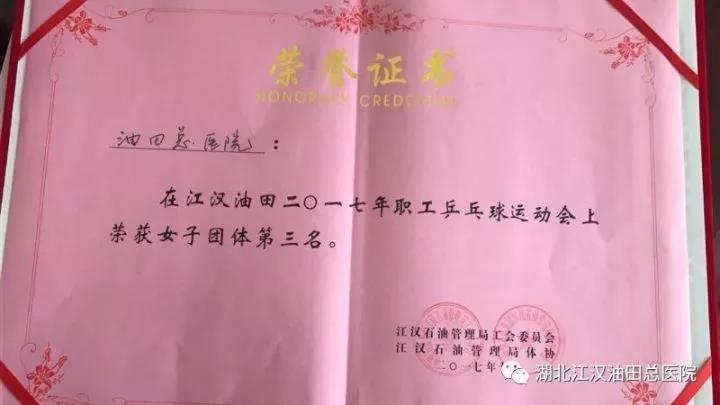 荣誉证书
HONORARY CREDENTIAL
油田总医院：
在江汉油田二〇一七年职工乒乓球运动会上
荣获女子团体第三名。
江汉石油管理局工会委员会
江汉石油管理局体协
二〇一七年
湖北江汉油田总医院